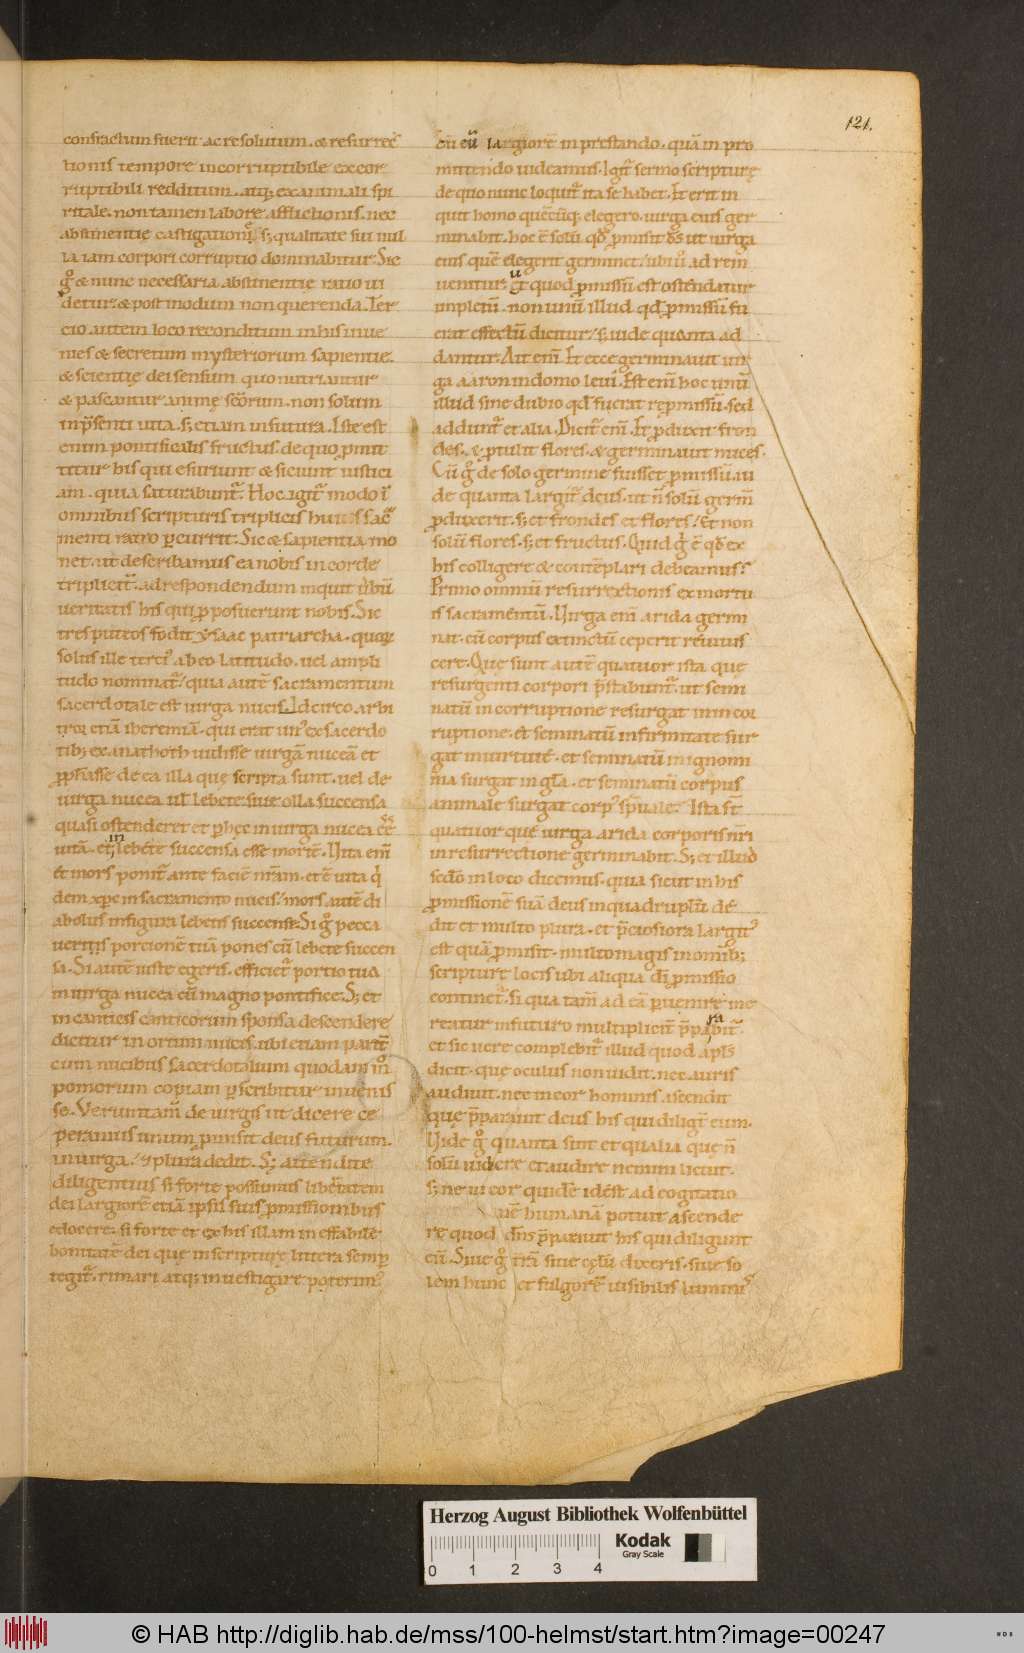 121.
confractum fuerit ac resolutum. & resurrec
tionis tempore incorruptibile ex cor
ruptibili redditum. atq; ex animali spi
ritale. non tam̄en labore afflictionis. nec
abstinentię castigation̄. s; qualitate sui nul
la iam corpori corruptio dominabitur. Sic
gͦ & nunc necessaria abstinentię ratio ui
detur. & post modum non querenda. Ter
cio autem loco reconditum in his inue
nies & secretum mysteriorum sapientie.
& scientię dei sensum quo nutriantur
& pascantur animę sc̄orum. non solum
in p̄senti uita. s; etiam in futura. Iste est
enim pontificalis fructus. de quo p̄mit
titur his qui esuriunt & siciunt iustici
am. quia saturabunt᷑. Hoc igit᷑ modo ī
omnibus scripturis triplicis huius sac̄
menti ratio p̄currit. Sic & sapientia mo
net. ut describamus ea nobis in corde
triplicit᷑. ad respondendum inquit u̅bū
ueritatis his qui proposuerunt nobis. Sic
tres puteos fodit ysaac patriarcha. quoꝝ
solus ille terci᷒ ab eo latitudo. uel ampli
tudo nominat᷑. quia autē sacramentum
sacerdotale est uirga nucis. Idcirco arbi
tror etiā iheremiā. qui erat un᷒ ex sacerdo
tib; ex anathoth uidisse uirgā nuceā et
ꝓph̄asse de ea illa quę scripta sunt. uel de
uirga nucea ul̄ lebete. siue olla succensa
quasi ostenderet et p̱ hęc in uirga nucea eē
uitā. et, in lebete succensa esse mortē. Uita em̄
& mors ponit᷑ ante faciē nr̄am. et ē uita q̇
dem xp̄c in sacramento nucis. mors autē di
abolus in figura lebetis succense. Si gͦ pecca
ueritis porcionē tuā pones cū lebete succen
sa. Si autē iuste egeris. efficiet᷑ portio tua
in uirga nucea cū magno pontifice. S; et
in canticis canticorum sponsa descendere
dicitur in ortum nucis. ubi etiam parit᷑
cum nucibus sacerdotalium quodam m̊
pomorum copiam p̱scribitur inuenis
se. Veruntam̄ de uirgis ut dicere ce
peramus unum p̄misit deus futurum.
in uirga. & plura dedit. S; attendite
diligentius si forte possimus lib̄tatem
dei largiorē etiā ipsis suis ꝓmissionibus
edocere. si forte et ex his illam ineffabilē
bonitatē dei quę in scripturę littera semp̱
tegit᷑. rimari atq; inuestigare poterim᷒.
cū eū largiorē in prestando. quā in pro
mittendo uideamus. Igit᷑ sermo scripturę
de quo nunc loquit᷑ ita se habet. Et erit in
quit homo quēcūq; elegero. uirga eius ger
minabit. hoc ē solū qd̄ ꝓmisit d̄s ut uirga
eius quē elegerit germinet. ubi u̅ ad rem
uenitur. ut & quod ꝓmissū est ostendatur
impletū. non unū illud qd̄ ꝓmissū fu
erat effectū dicitur. s; uide quanta ad
dantur. Ait em̄. Et ecce germinauit uir
ga aaron in domo leui. Est em̄ hoc unū
illud sine dubio qd̄ fuerat rep̱missū. sed
addunt᷑ et alia. Dicit᷑ em̄. Et produxit fron
des. & ꝓtulit flores. & germinauit nuces.
Cū gͦ de solo germine fuisset ꝓmissū. ui
de quanta largit᷑ deus. ut n̄ solū germ̄
ꝓduxerit. s; et frondes et flores. Et non
solū flores. s; et fructus. Quid gͦ ē qd̄ ex
his colligere & contēplari debeamus?
Primo omniū resurrectionis ex mortu
is sacramentū. Uirga em̄ arida germi
nat. cū corpus extinctū ceperit reuiuis
cere. Quę sunt autē quatuor ista quę
resurgenti corpori p̄stabunt᷑. ut semi
natū in corruptione resurgat in incor
ruptione. et seminatū infirmitate sur
gat in uirtute. et seminatū in ignomi
nia surgat in gl̄a. et seminatū corpus
animale surgat corp᷒ sp̄uale. Ista st̄
quatuor quę uirga arida corporis nr̄i
in resurrectione germinabit. S; et illud
scdō in loco dicemus. quia sicut in his
ꝓmissionē suā deus in quadruplū de
dit et multo plura. et p̄ciosiora largit᷒
est quā ꝓmisit. multo magis in om̄ib;
scripturę locis ubi aliqua di̅ ꝓmissio
continet᷑. si qua tam̄ ad eā p̱uenire me
reatur in futuro multiplicius p̄parabit᷑.
et sic uere complebit᷑ illud quod apl̄s
dicit. quę oculus non uidit. nec auris
audiuit. nec in cor hominis ascendit
quę p̄parauit deus his qui diligt̄ eum.
Uide gͦ quanta sint et qualia que n̄
solū uidere et audire nemini licuit.
s; ne in cor quidē id est ad cogitatio
nē humanā potuit ascende
re quod dn̄s p̄parauit his qui diligunt
eū. Siue gͦ tr̄ā siue cęlū dixeris. siue so
lem hunc et fulgorē uisibilis lumini᷒
Herzog August Bibliothek Wolfenbüttel
0 1 2 3 4
Kodak
Gray Scale
© HAB http://diglib.hab.de/mss/100-helmst/start.htm?image=00247